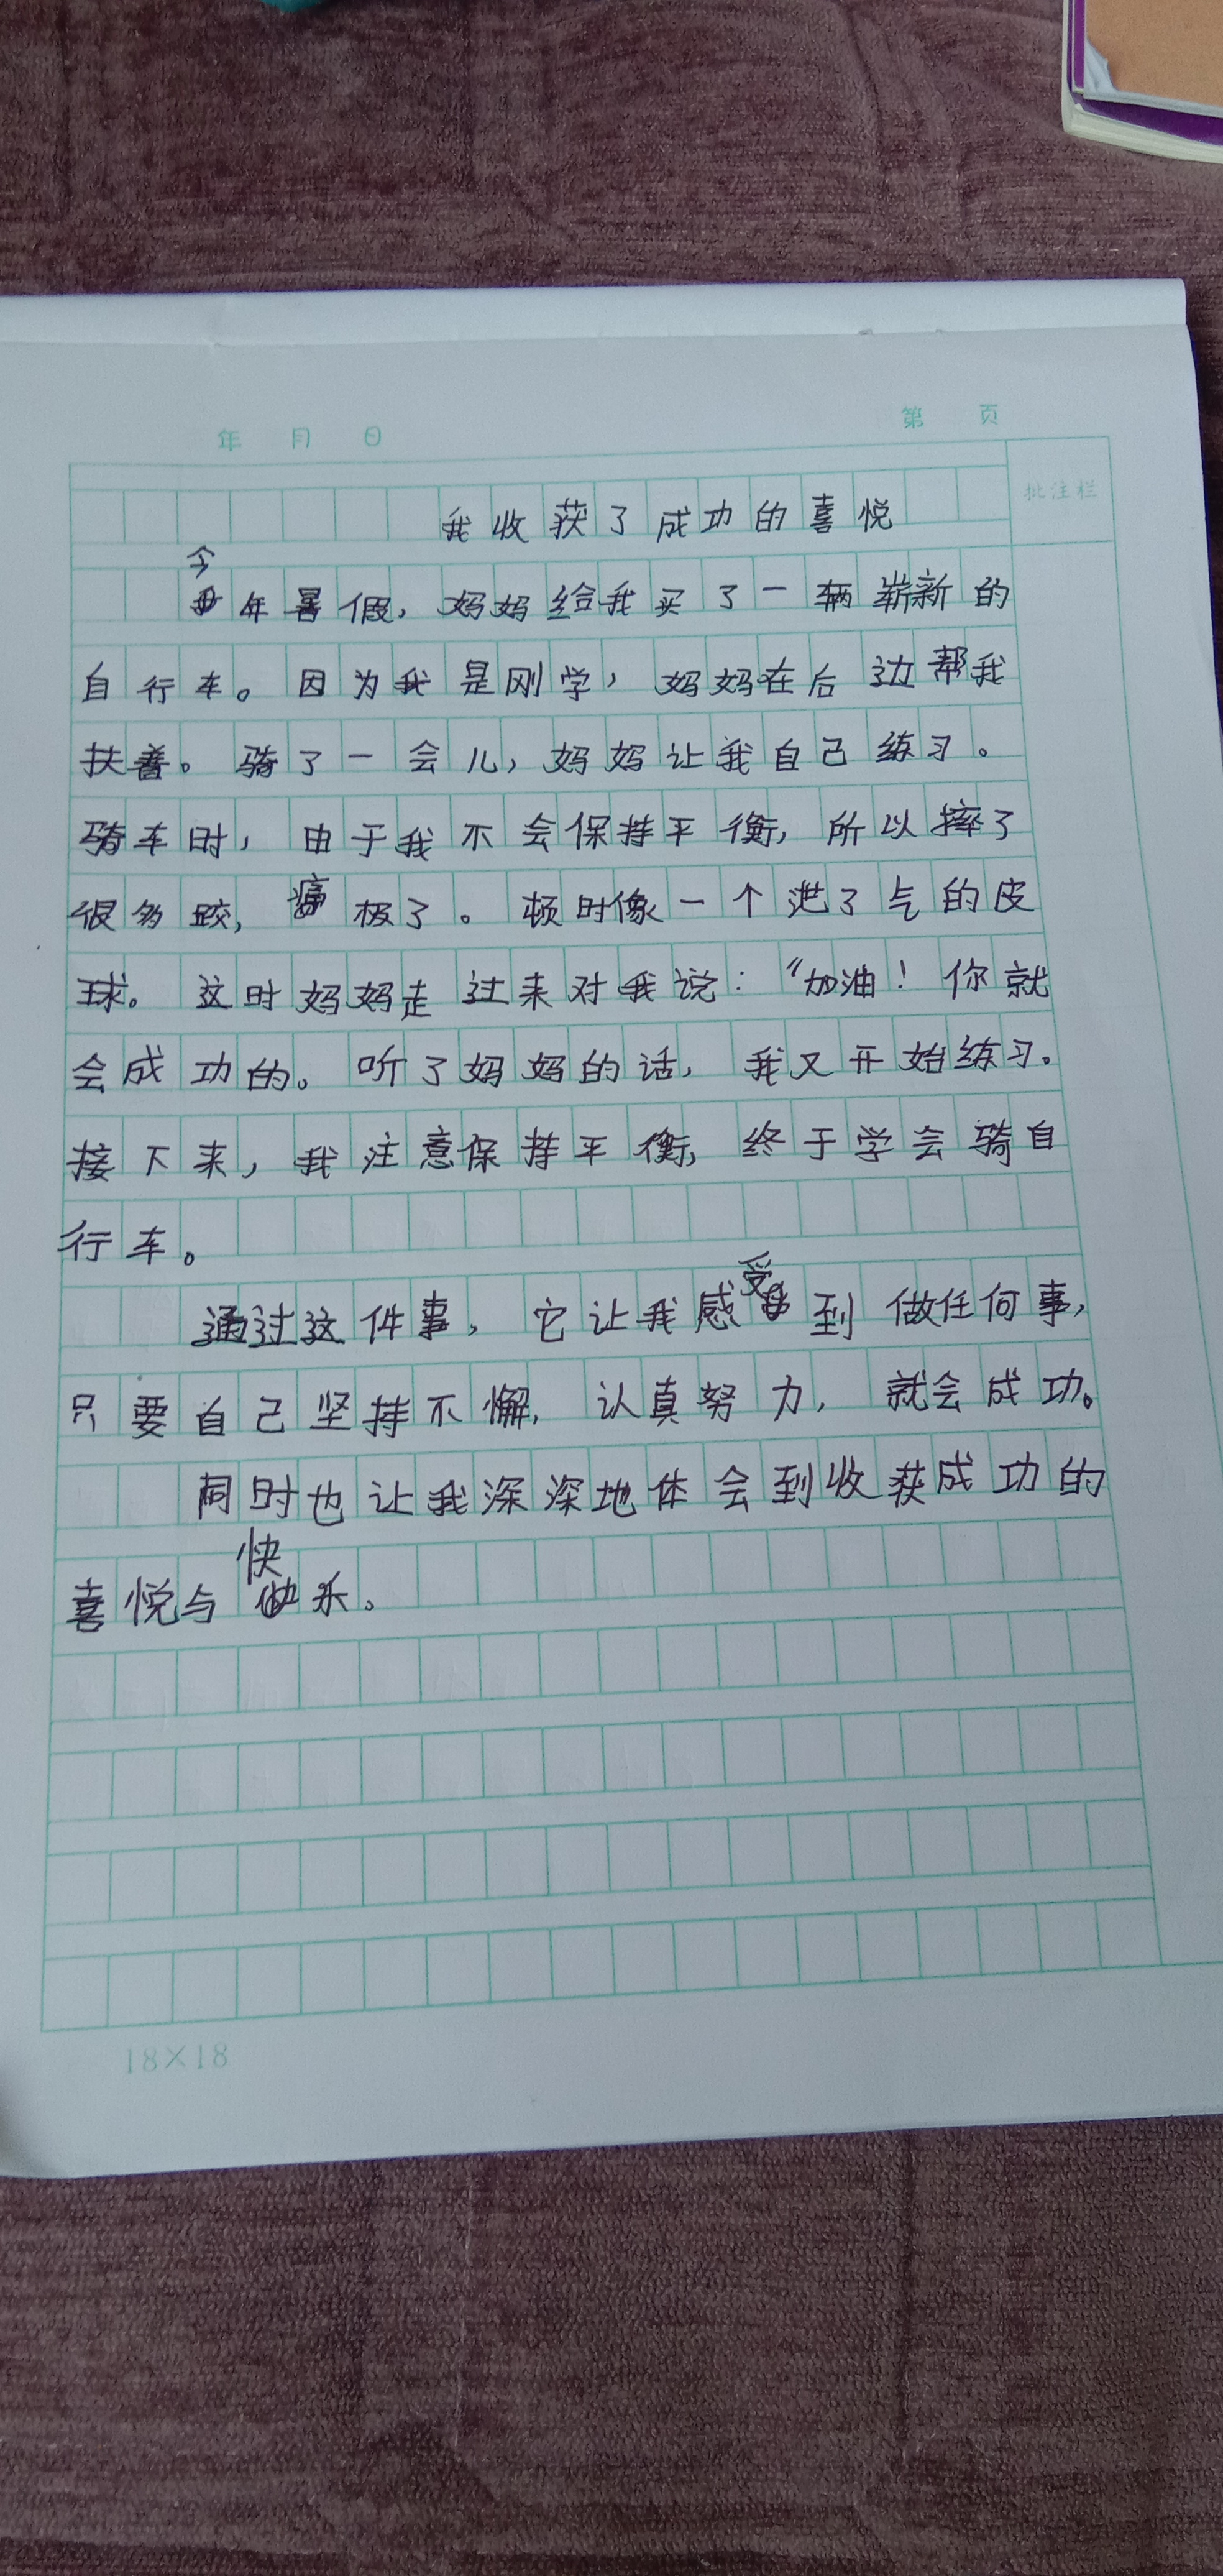 年 月 日 第 页
批注栏
我收获了成功的喜悦
今年暑假，妈妈给我买了一辆崭新的
自行车。因为我是刚学，妈妈在后边帮我
扶着。骑了一会儿，妈妈让我自己练习。
骑车时，由于我不会保持平衡，所以摔了
很多跤，痛极了。顿时像一个泄了气的皮
球。这时妈妈走过来对我说：“加油！你就
会成功的。听了妈妈的话，我又开始练习。
接下来，我注意保持平衡，终于学会骑自
行车。
通过这件事，它让我感受到做任何事，
只要自己坚持不懈，认真努力，就会成功。
同时也让我深深地体会到收获成功的
喜悦与快乐。
18×18